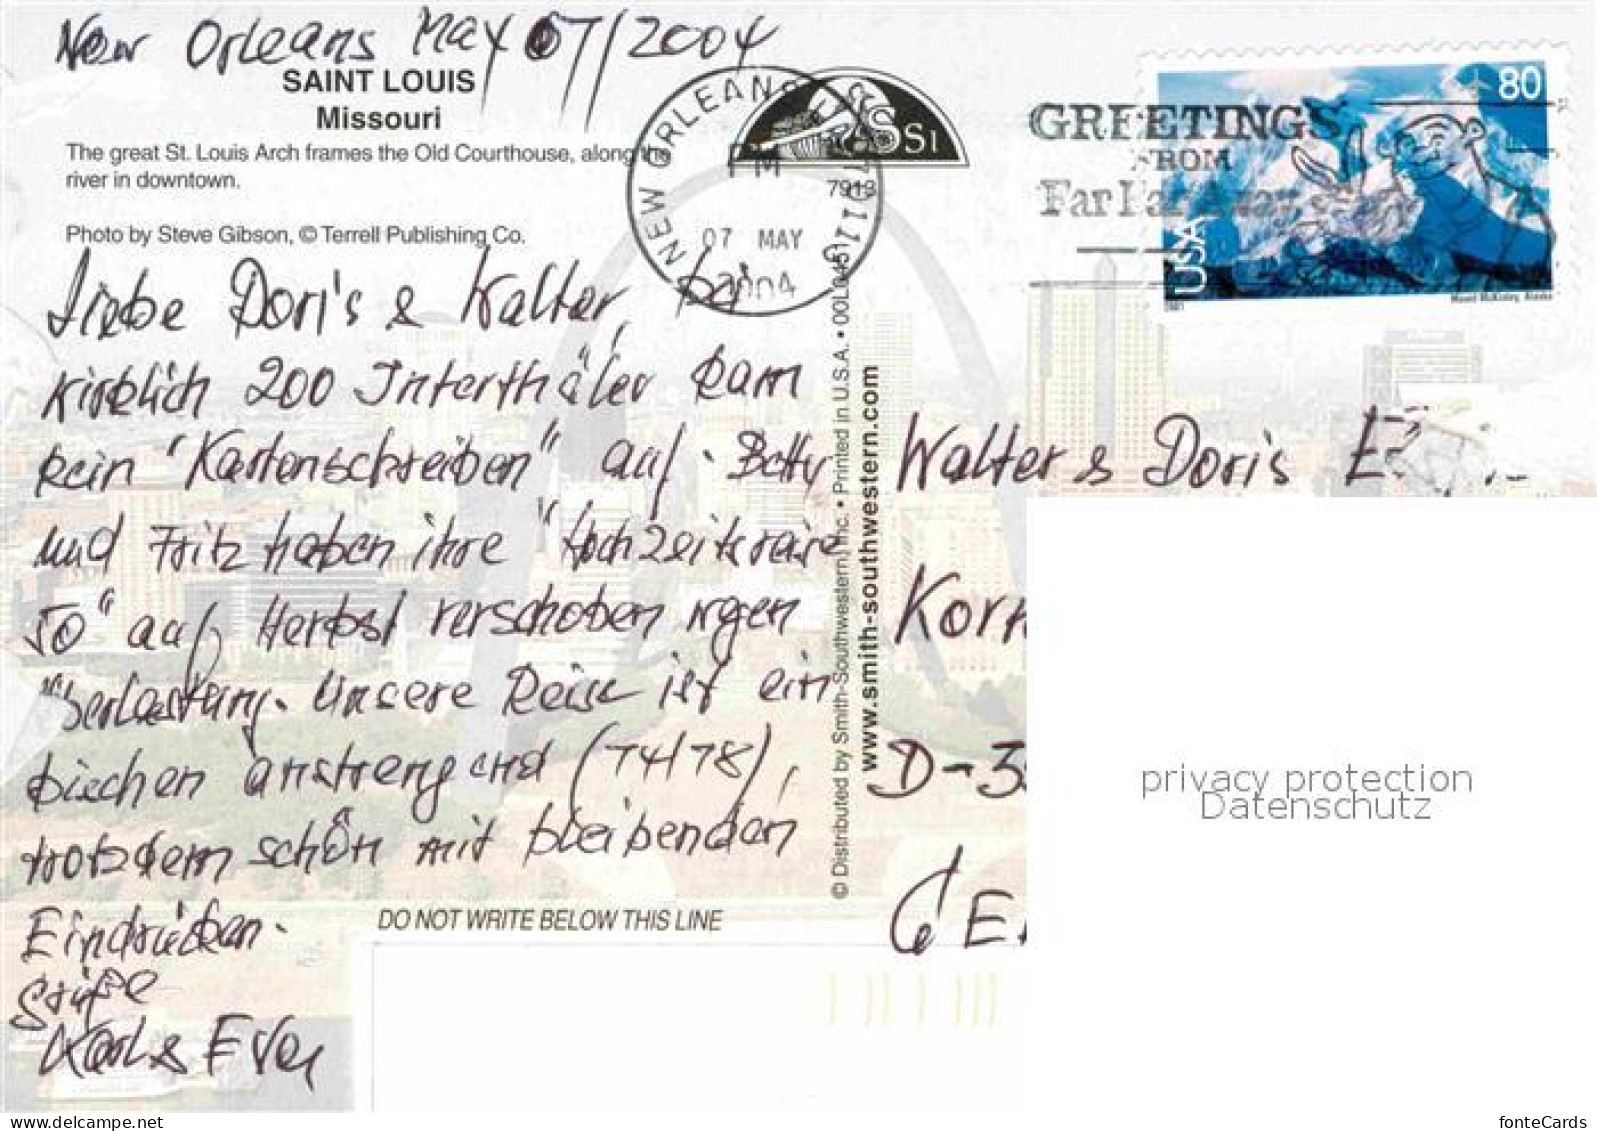 New Orleans May 07/2004
SAINT LOUIS
Missouri
The great St. Louis Arch frames the Old Courthouse, along the
river in downtown.
Photo by Steve Gibson, © Terrell Publishing Co.
Liebe Doris & Walter, bei
wirklich 200 Interthäler kam
kein "Kartenschreiben" auf. Betty
und Fritz haben ihre "Hochzeitsreise
50" auf Herbst verschoben wegen
Überlastung. Unsere Reise ist ein
bischen anstrengend (74/78),
trotzdem schön mit bleibenden
Eindrücken.
Grüße
Karl & Eva
DO NOT WRITE BELOW THIS LINE
NEW ORLEANS
PM
07 MAY
2004
SSI
7919
© Distributed by Smith-Southwestern, Inc. • Printed in U.S.A. •
www.smith-southwestern.com
GREETINGS
FROM
Far Far Away
80
USA
Mount McKinley, Alaska
Walter & Doris
Korn
D-3
GE
privacy protection
Datenschutz
www.delcampe.net
fonteCards